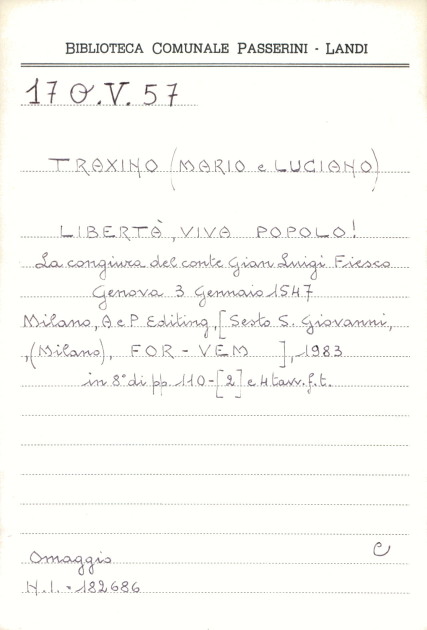 BIBLIOTECA COMUNALE PASSERINI - LANDI
17 O.V. 57
TRAXINO (MARIO e LUCIANO)
LIBERTÀ, VIVA POPOLO!
La congiura del conte Gian Luigi Fiesco
Genova 3 Gennaio 1547
Milano, A e P Editing, [Sesto S. Giovanni,
,(Milano), FOR-VEM ], 1983
in 8° di pp. 110-[2] e 4 tavv. f.t.
C
Omaggio
N.I. - 182686